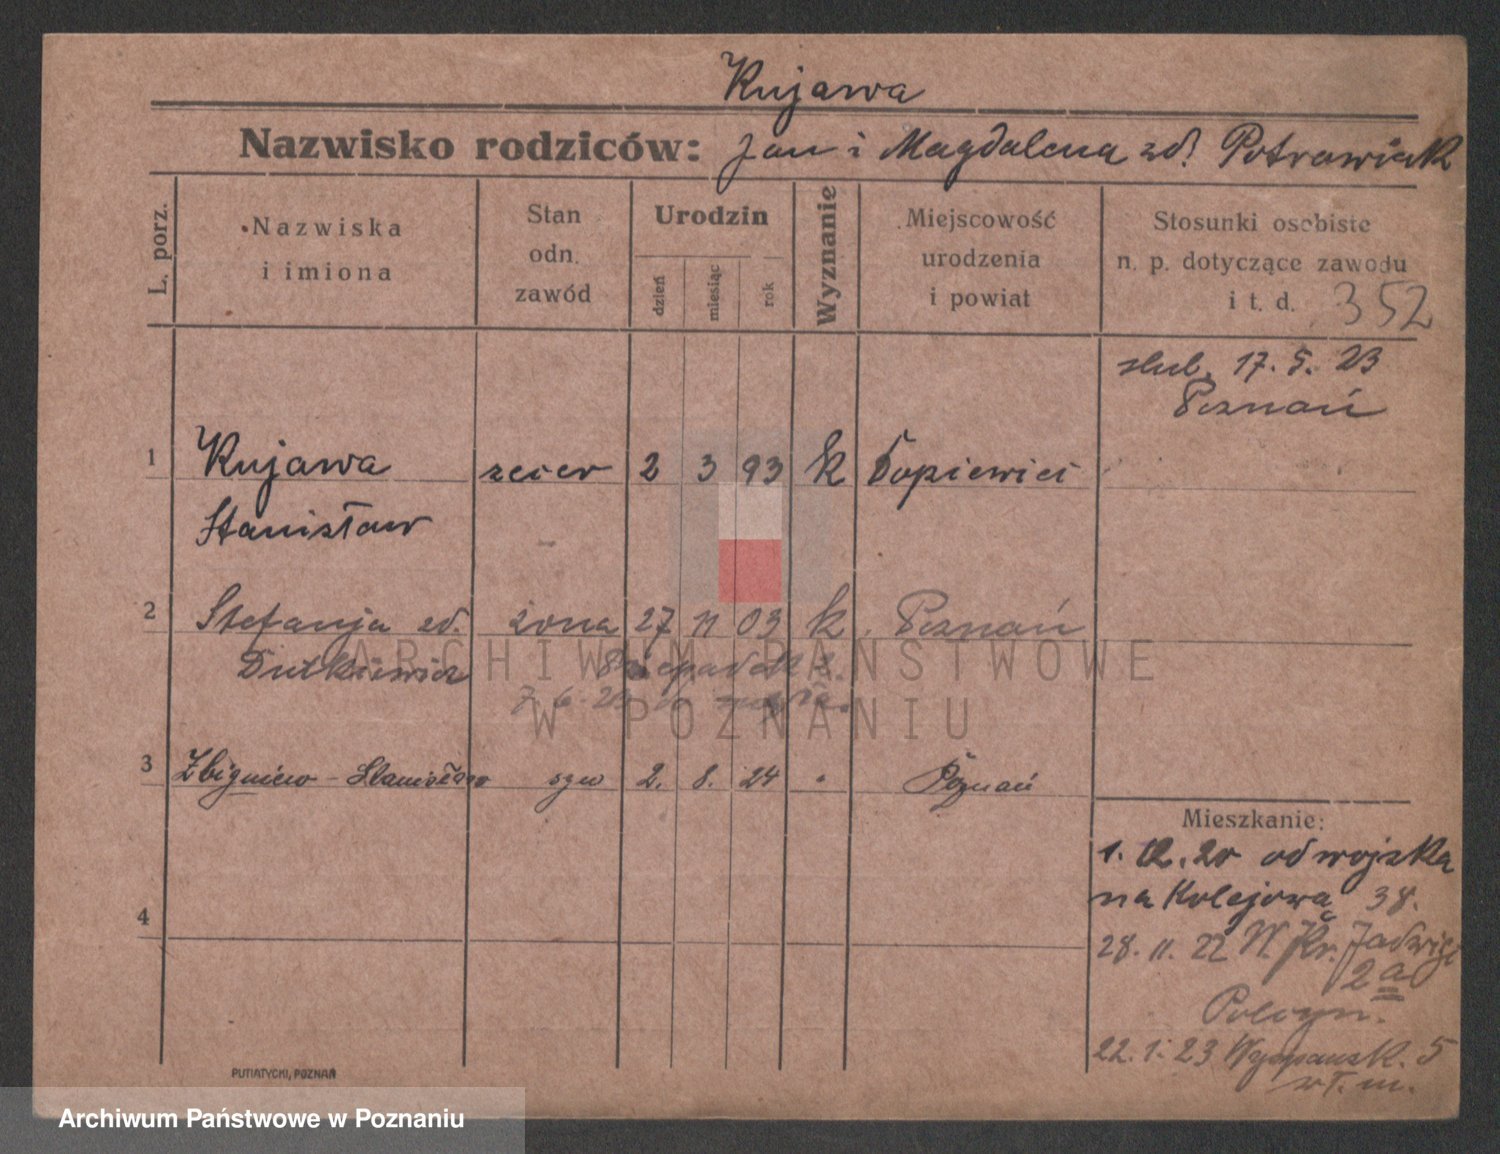 Kujawa
Nazwisko rodziców: Jan i Magdalena zd. Potrawiak
L. porz.
Nazwiska i imiona
Stan odn. zawód
Urodzin
dzień miesiąc rok
Wyznanie
Miejscowość urodzenia i powiat
Stosunki osobiste n. p. dotyczące zawodu i t. d. 352
slub. 17. 5. 23
Poznań
1 Kujawa zecer 2 3 93 k Dopiewiec
Stanisław
2 Stefanja zd. żona 27 11 03 k Poznań
Dutkiewicz
7. 6. 23
ARCHIWUM PAŃSTWOWE
W POZNANIU
3 Zbigniew - Stanisław syn 2. 8. 24 Poznań
Mieszkanie:
1. 12. 20 od wojska
na Kolejowa 38.
4
28. 11. 22 W. Kr. Jadwigi
2a
22. 1. 23 Wyspiansk. 5
w T. m.
PUTIATYCKI, POZNAŃ
Archiwum Państwowe w Poznaniu